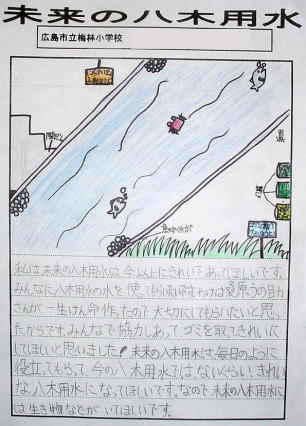 未来の八木用水
広島市立梅林小学校
私は未来の八木用水は今以上にきれいであってほしいです。
みんなに八木用水の水を使ってもらいたいですわけは桑原うの助
さんが一生けん命作ったので大切にしてもらいたいと思っ
たからです。みんなで協力しあってゴミを取てきれいに
してほしいと思いました!未来の八木用水は、毎日のように
役立ってもらって、今の八木用水ではないくらい、きれい
な、八木用水になってほしいです。なので未来の八木用水に
は生き物などがいてほしいです。